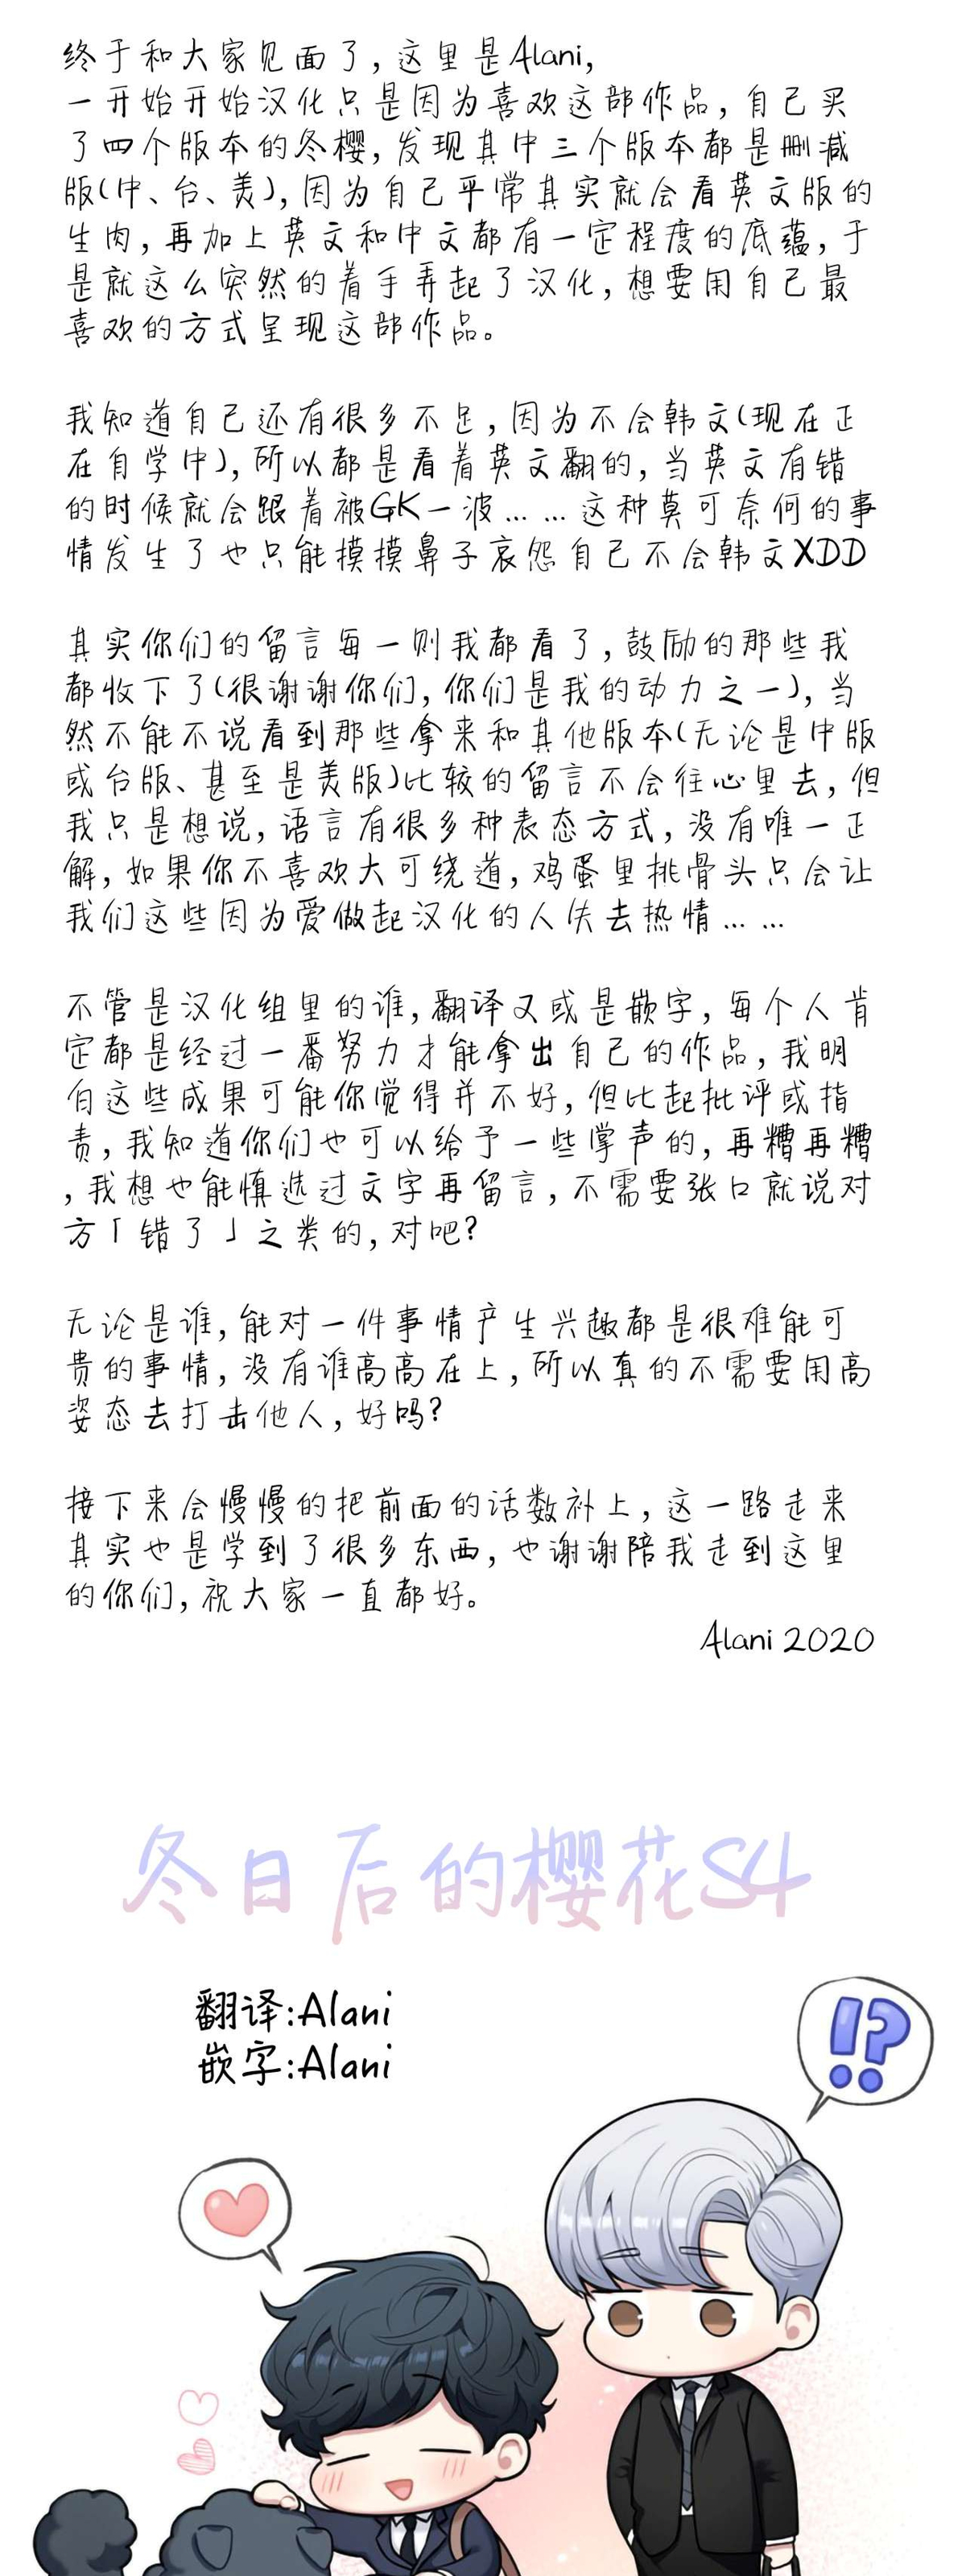 终于和大家见面了，这里是Alani，
一开始开始汉化只是因为喜欢这部作品，自己买
了四个版本的冬樱，发现其中三个版本都是删减
版(中、台、美)，因为自己平常其实就会看英文版的
生肉，再加上英文和中文都有一定程度的底蕴，于
是就这么突然的着手弄起了汉化，想要用自己最
喜欢的方式呈现这部作品。
我知道自己还有很多不足，因为不会韩文(现在正
在自学中)，所以都是看着英文翻的，当英文有错
的时候就会跟着被GK一波... ...这种莫可奈何的事
情发生了也只能摸摸鼻子哀怨自己不会韩文XDD
其实你们的留言每一则我都看了，鼓励的那些我
都收下了(很谢谢你们，你们是我的动力之一)，当
然不能不说看到那些拿来和其他版本(无论是中版
或台版、甚至是美版)比较的留言不会往心里去，但
我只是想说，语言有很多种表态方式，没有唯一正
解，如果你不喜欢大可绕道，鸡蛋里挑骨头只会让
我们这些因为爱做起汉化的人失去热情... ...
不管是汉化组里的谁，翻译又或是嵌字，每个人肯
定都是经过一番努力才能拿出自己的作品，我明
白这些成果可能你觉得并不好，但比起批评或指
责，我知道你们也可以给予一些掌声的，再糟再糟
，我想也能慎选过文字再留言，不需要张口就说对
方「错了」之类的，对吧?
无论是谁，能对一件事情产生兴趣都是很难能可
贵的事情，没有谁高高在上，所以真的不需要用高
姿态去打击他人，好吗?
接下来会慢慢的把前面的话数补上，这一路走来
其实也是学到了很多东西，也谢谢陪我走到这里
的你们，祝大家一直都好。
Alani 2020
冬日后的樱花S4
翻译:Alani
嵌字:Alani
!?